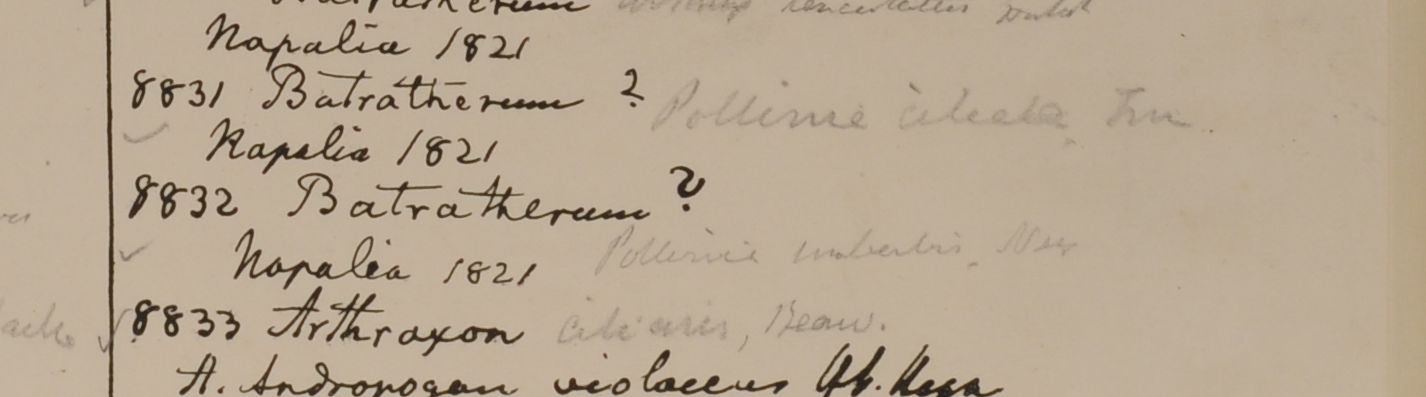 Napalia 1821
8831 Batratherum ? Pollinia ciliata Trin
Napalia 1821
8832 Batratherum ?
Napalia 1821 Pollinia imberbis Nees
8833 Arthraxon ciliaris, Beauv.
A. Andropogon violaceus Hb.